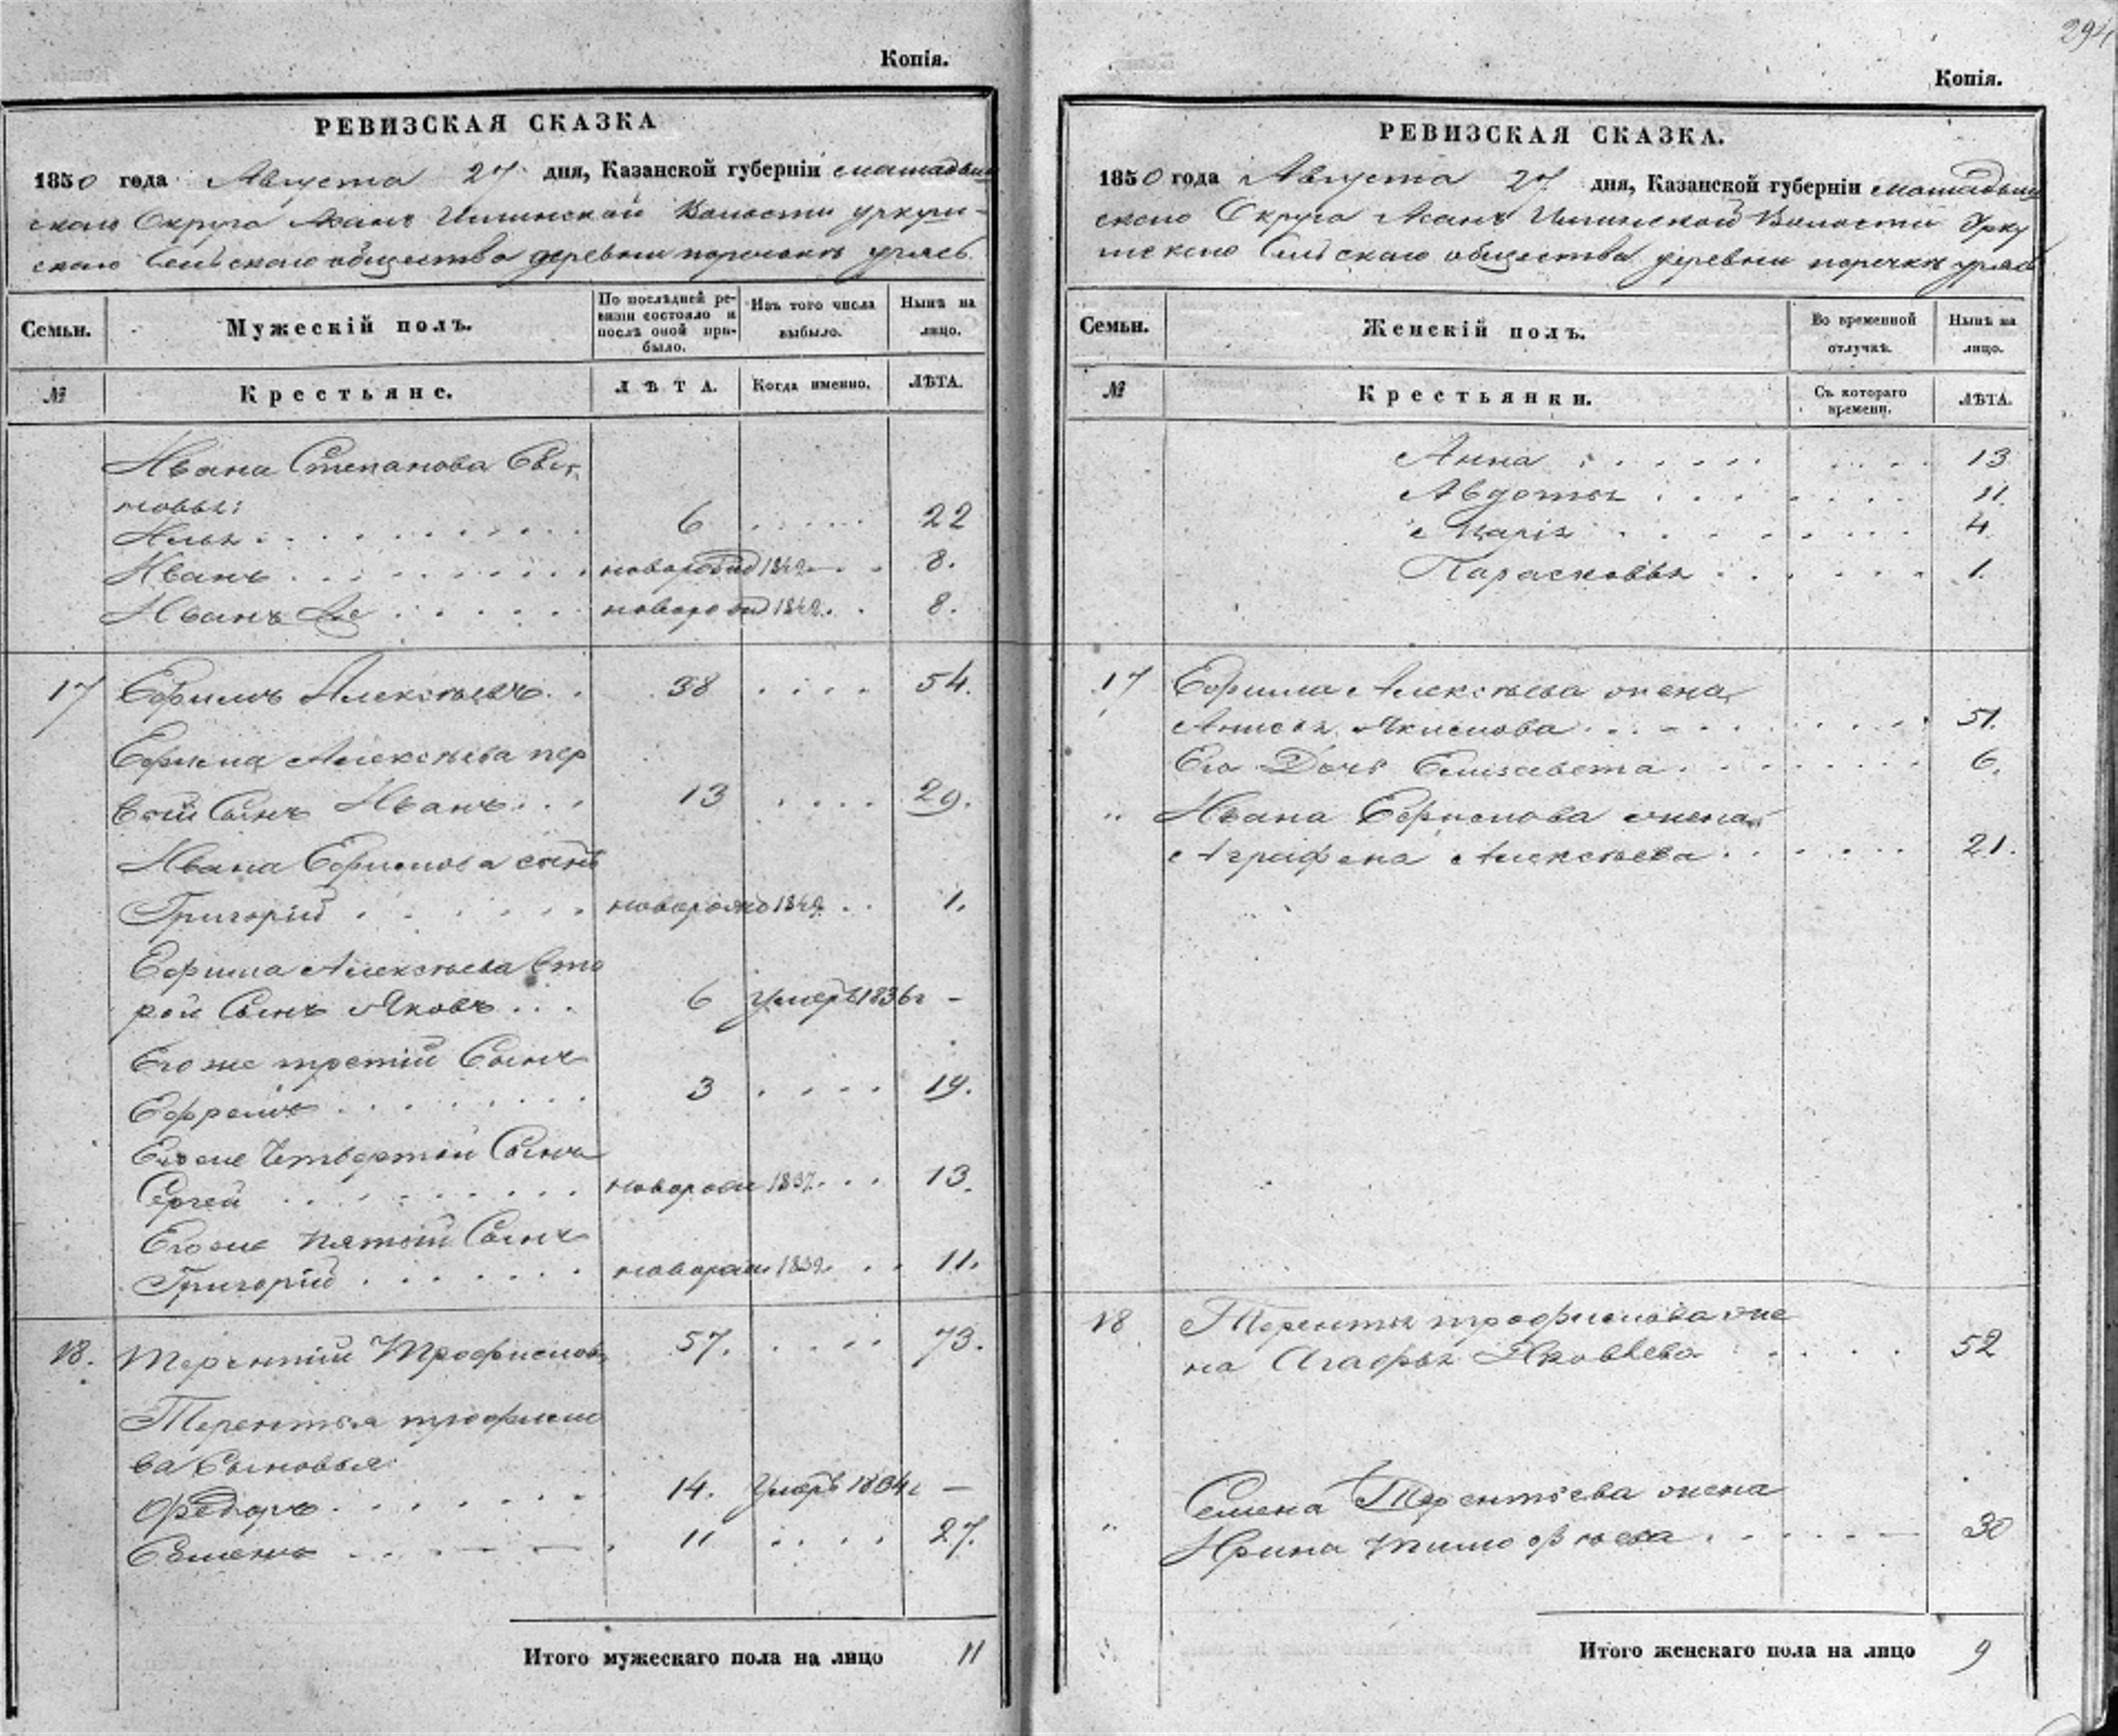 Копія.
РЕВИЗСКАЯ СКАЗКА
1850 года Августа 27 дня, Казанской губерніи
скаго Округа Волости
скаго Сельскаго общества деревни
Семьи. Мужескій полъ. По послѣдней ревизіи состояло и послѣ оной прибыло. Изъ того числа выбыло. Нынѣ на лицо.
№ Крестьяне. ЛѢТА. Когда именно. ЛѢТА.
Ивана Степанова Сы
новья:
Илья 6 22
Иванъ новорожд 1842 8.
Иванъ новорожд 1842 8.
17 Ефимъ Алексѣевъ 38 54.
Ефима Алексѣева пер
вой Сынъ Иванъ 13 29.
Ивана Ефимова сынъ
Григорій новорожд 1849 1.
Ефима Алексѣева вто
рой Сынъ Яковъ 6 Умеръ 1836 г —
Его же третій Сынъ
Ефремъ 3 19.
Его же Четвертой Сынъ
Сергей новорож 1837 13.
Его же пятой Сынъ
Григорій новорож 1839 11.
18. Терентій Трофимовъ 57. 73.
Терентья трофимо
ва Сыновья
Федоръ 14. Умеръ 1834 г —
Семенъ 11 27.
Итого мужескаго пола на лицо 11
294
Копія.
РЕВИЗСКАЯ СКАЗКА.
1850 года Августа 27 дня, Казанской губерніи
скаго Округа Волости
Сельскаго общества деревни
Семьи. Женскій полъ. Во временной отлучкѣ. Нынѣ на лицо.
№ Крестьянки. Съ котораго времени. ЛѢТА.
Анна 13
Авдотья 11
Марія 4
Парасковья 1.
17 Ефима Алексѣева жена
Анисья Якимова 51.
Его Дочь Елизавета 6.
" Ивана Ефимова жена
Аграфена Алексѣева 21.
18 Терентья трофимова же
на Агафья Яковлева 52
Семена Терентьева жена
" Ирина тимофѣева 30
Итого женскаго пола на лицо 9